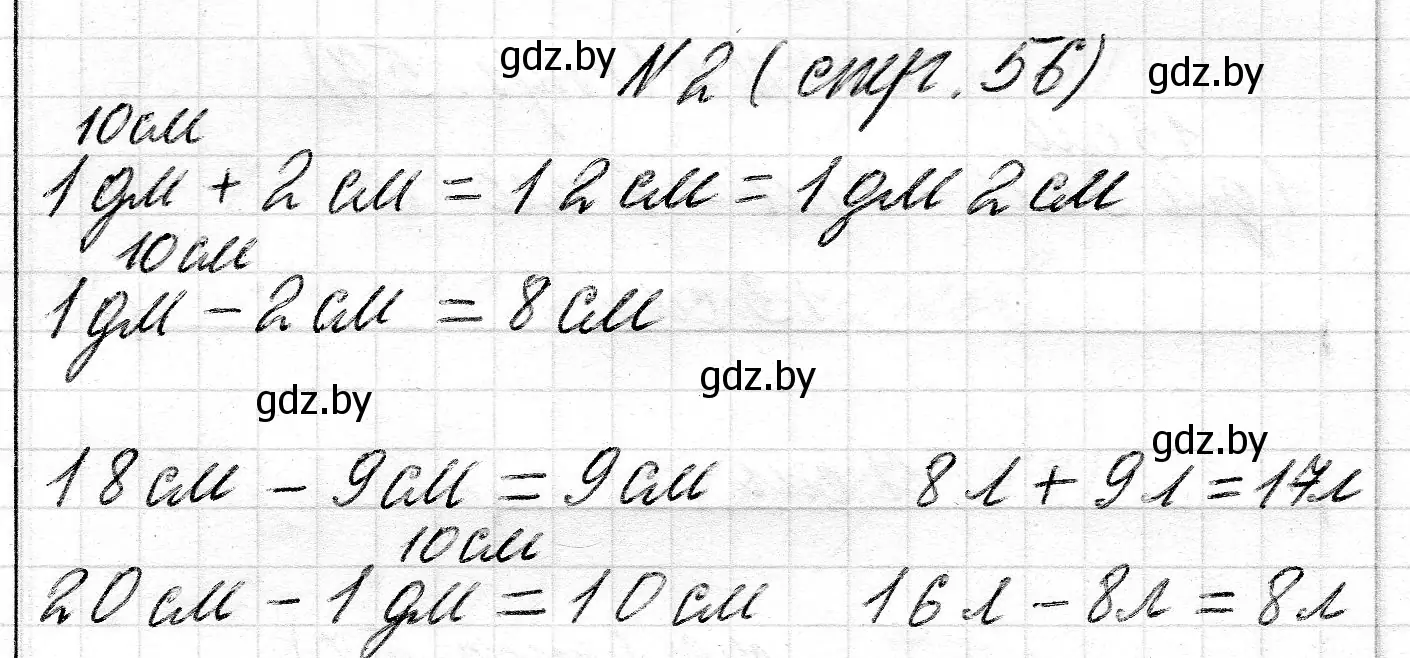 gdz.by №2 (стр. 56) gdz.by
10см
1дм + 2см = 12см = 1дм 2см
10см
1дм - 2см = 8см
gdz.by gdz.by
gdz.by
18см - 9см = 9см 8л + 9л = 17л
10см
20см - 1дм = 10см 16л - 8л = 8л